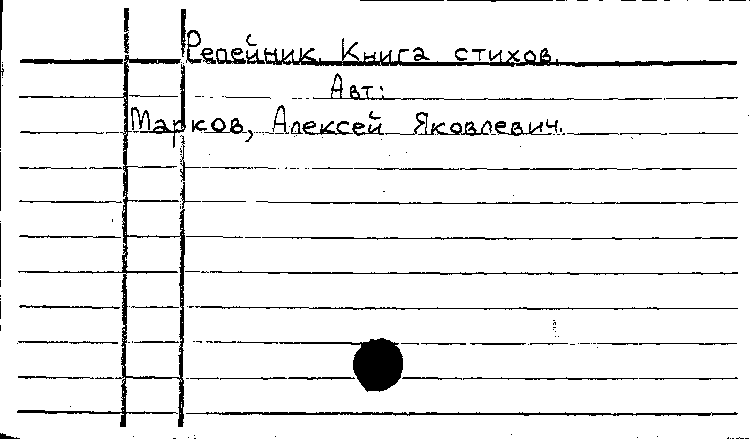 Репейник. Книга стихов.
Авт:
Марков, Алексей Яковлевич.